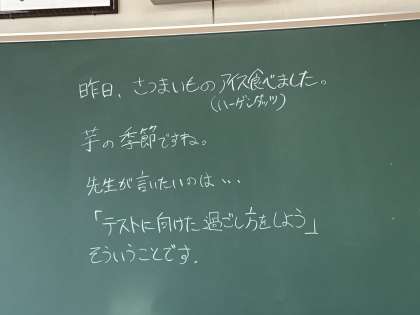 昨日、さつまいものアイス食べました。
(ハーゲンダッツ)
芋の季節ですね。
先生が言いたいのは...
「テストに向けた過ごし方をしよう」
そういうことです.